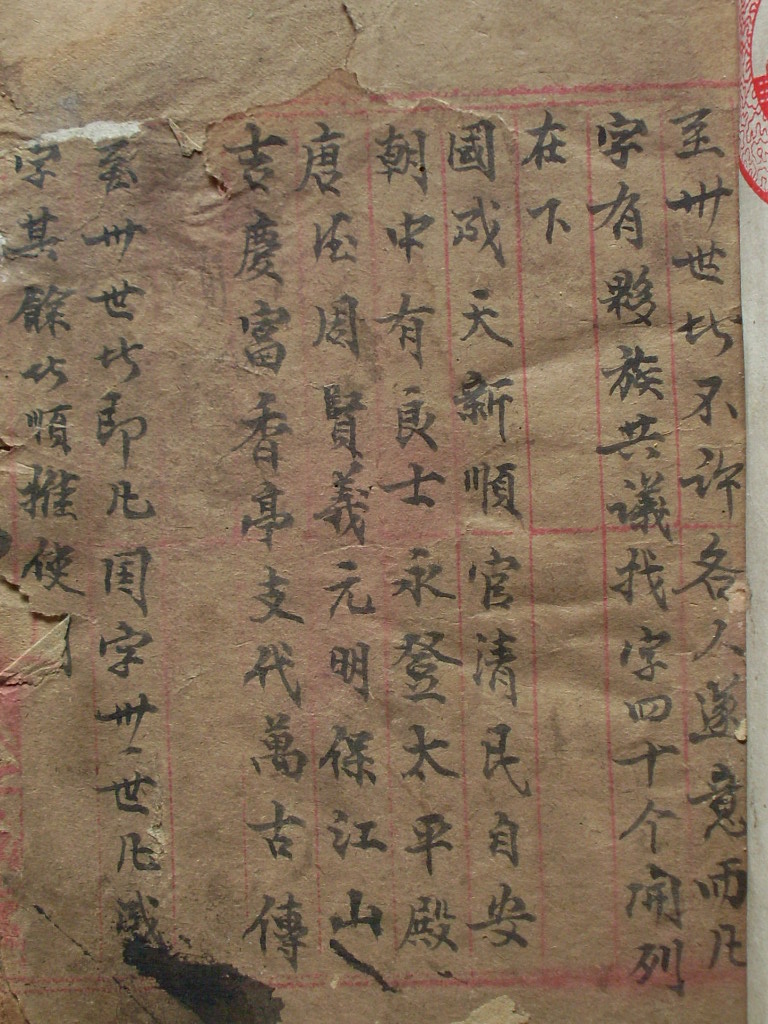 至卅世以不許各人遂意而凡
字有夥族共議找字四十个開列
在下
國成天新順官清民自安
朝中有良士永登太平殿
唐法周賢義元明保江山
吉慶富香亭支代萬古傳
至卅世以即凡國字卅一世凡成
字其餘以順推使